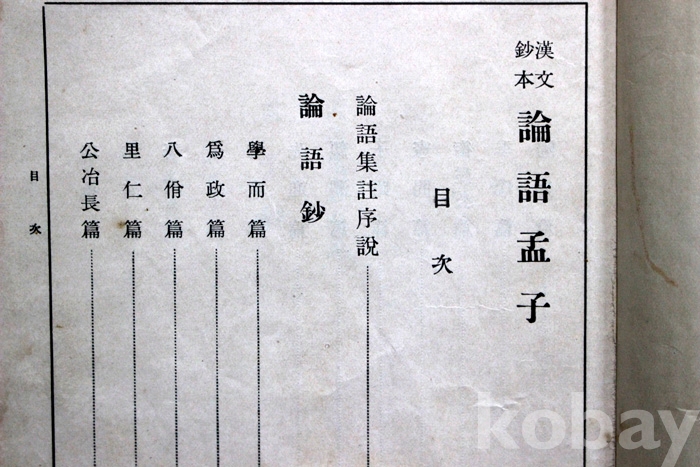 漢文
鈔本
論語孟子
目次
論語集註序說
論語鈔
學而篇
爲政篇
八佾篇
里仁篇
公冶長篇
目次
kobay